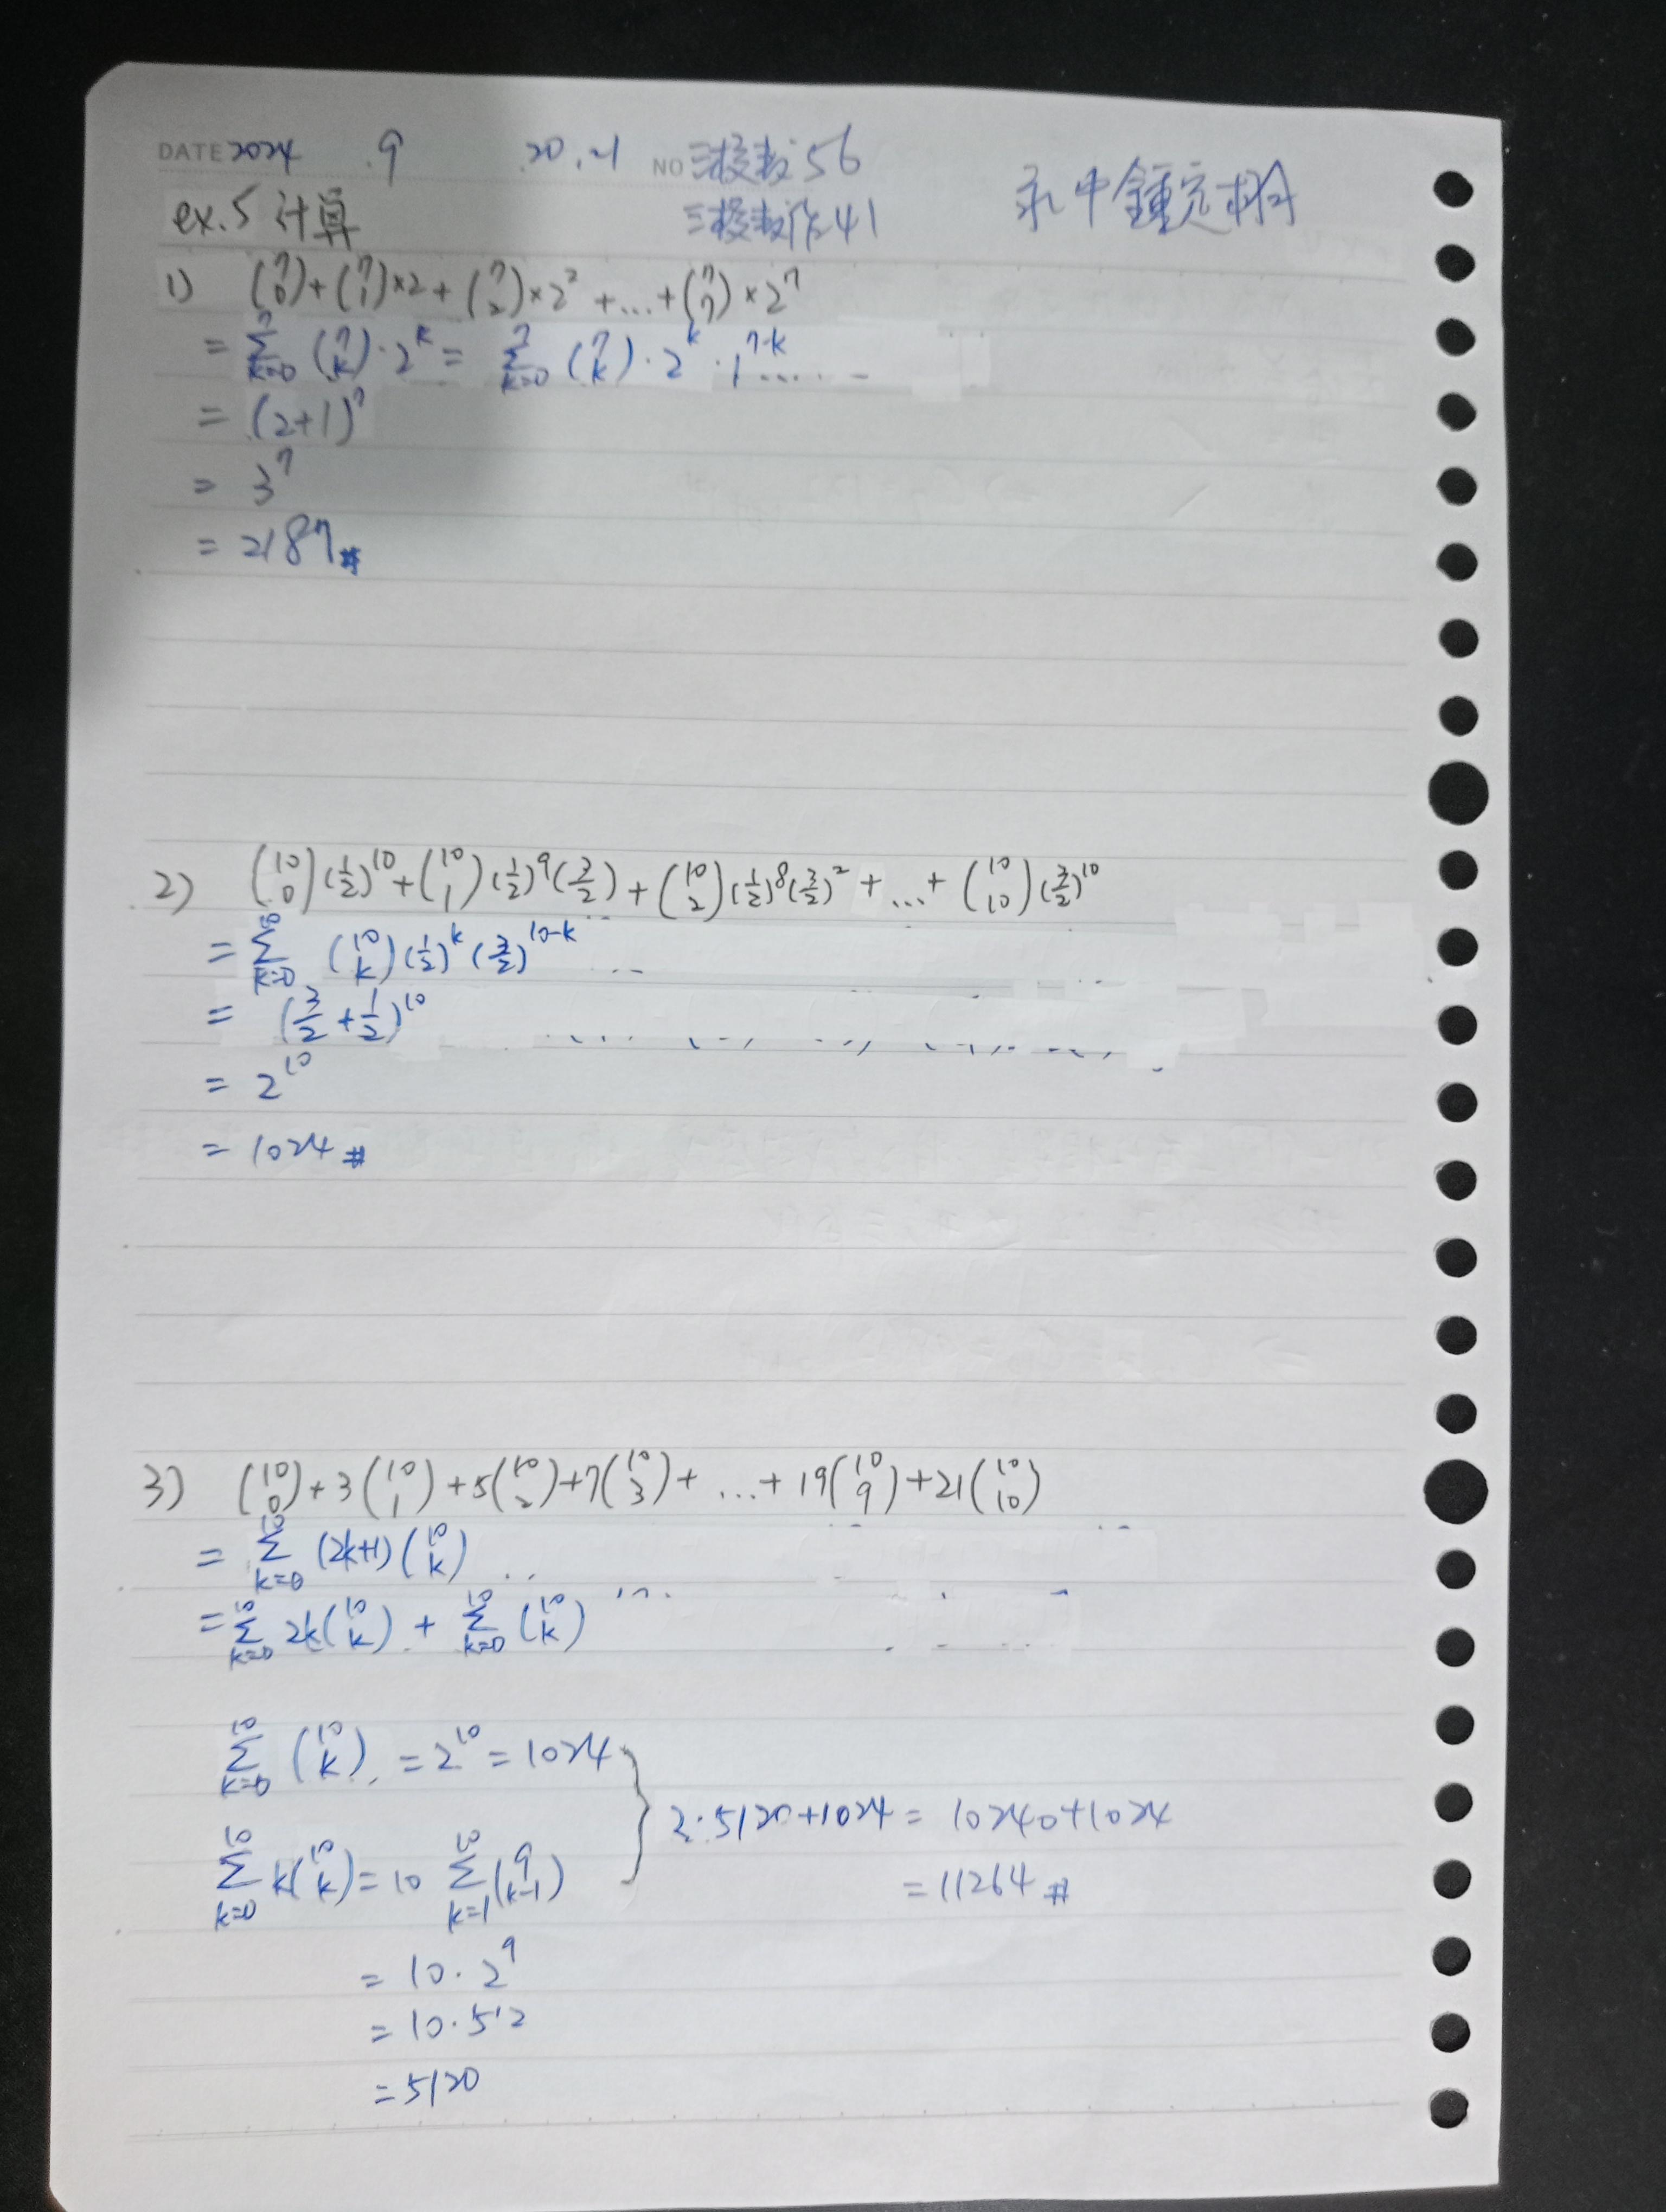 DATE 2024 .9 .20.21 NO 三技数56
ex.5 計算 三技数作41
永中鍾定栩
1) (7 0)+(7 1)×2+(7 2)×2²+...+(7 7)×2⁷
= Σ_{k=0}^{7} (7 k)·2^k = Σ_{k=0}^{7} (7 k)·2^k·1^{7-k}
= (2+1)⁷
= 3⁷
= 2187#
2) (10 0)(1/2)^10+(10 1)(1/2)^9(3/2)+(10 2)(1/2)^8(3/2)^2+...+(10 10)(3/2)^10
= Σ_{k=0}^{10} (10 k)(1/2)^k(3/2)^{10-k}
= (3/2+1/2)^10
= 2^10
= 1024#
3) (10 0)+3(10 1)+5(10 2)+7(10 3)+...+19(10 9)+21(10 10)
= Σ_{k=0}^{10} (2k+1)(10 k)
= Σ_{k=0}^{10} 2k(10 k) + Σ_{k=0}^{10} (10 k)
Σ_{k=0}^{10} (10 k) = 2^10 = 1024
Σ_{k=0}^{10} k(10 k) = 10 Σ_{k=1}^{10} (9 k-1)
= 10·2^9
= 10·512
= 5120
2·5120+1024 = 10240+1024
= 11264#